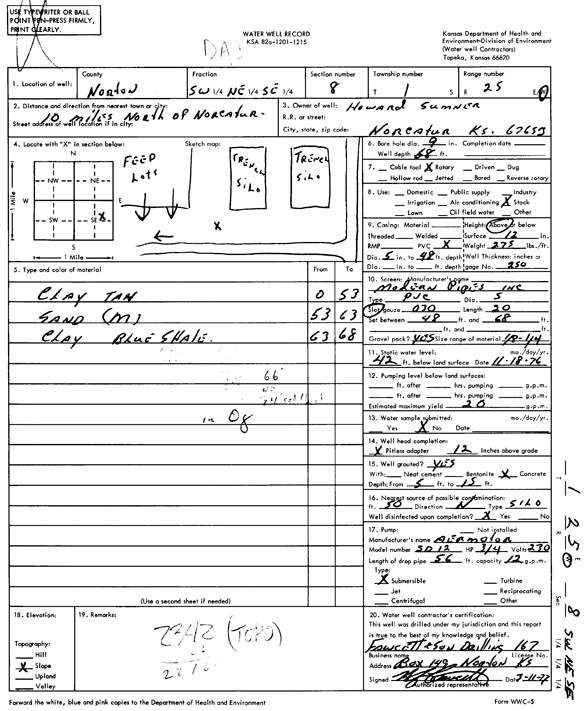 USE TYPEWRITER OR BALL
POINT PEN-PRESS FIRMLY,
PRINT CLEARLY.
WATER WELL RECORD
KSA 82a-1201-1215
Kansas Department of Health and
Environment-Division of Environment
(Water well Contractors)
Topeka, Kansas 66620
1. Location of well:
County
Norton
Fraction
SW 1/4 NE 1/4 SE 1/4
Section number
8
Township number
T 1 S
Range number
R 25 E/W
2. Distance and direction from nearest town or city:
10 miles North of Norcatur.
Street address of well location if in city:
3. Owner of well: Howard Sumner
R.R. or street:
City, state, zip code: Norcatur Ks. 67653
4. Locate with "X" in section below:
Sketch map:
N
NW NE
W E
SW SE X
S
1 Mile
1 Mile
FEED
Lots
TRENCH
SILO
TRENCH
SILO
X
5. Type and color of material
From To
CLAY TAN 0 53
SAND (M) 53 63
CLAY BLUE SHALE. 63 68
66'
in 08
(Use a second sheet if needed)
6. Bore hole dia. 9 in. Completion date
Well depth 68 ft.
7. Cable tool X Rotary Driven Dug
Hollow rod Jetted Bored Reverse rotary
8. Use: Domestic Public supply Industry
Irrigation Air conditioning X Stock
Lawn Oil field water Other
9. Casing: Material Height: Above or below
Threaded Welded Surface 12 in.
RMP PVC X Weight 275 lbs./ft.
Dia. 5 in. to 48 ft. depth Wall Thickness: inches or
Dia. in. to ft. depth gage No. 250
10. Screen: Manufacturer's name
MODERN PIPES INC
Type PVC Dia. 5
Slot/gauze 030 Length 20
Set between 48 ft. and 68 ft.
ft. and ft.
Gravel pack? YES Size range of material 1/8-1/4
11. Static water level: mo./day/yr.
42 ft. below land surface Date 11-18-76
12. Pumping level below land surfaces:
ft. after hrs. pumping g.p.m.
ft. after hrs. pumping g.p.m.
Estimated maximum yield 20 g.p.m.
13. Water sample submitted: mo./day/yr.
Yes X No Date
14. Well head completion:
X Pitless adapter 12 Inches above grade
15. Well grouted? YES
With: Neat cement Bentonite X Concrete
Depth: From 5 ft. to 15 ft.
16. Nearest source of possible contamination:
ft. 50 Direction N Type SILO
Well disinfected upon completion? X Yes No
17. Pump: Not installed
Manufacturer's name AERMOTOR
Model number SD12 HP 3/4 Volts 230
Length of drop pipe 56 ft. capacity 12 g.p.m.
Type:
X Submersible Turbine
Jet Reciprocating
Centrifugal Other
18. Elevation:
Topography:
Hill
X Slope
Upland
Valley
19. Remarks:
2342 (TOPO)
20. Water well contractor's certification:
This well was drilled under my jurisdiction and this report
is true to the best of my knowledge and belief.
Fawcett & Son Drilling 167
Business name License No.
Address Box 149 Norton Ks
Signed Date
Authorized representative
T 1 R 25 E W Sec 8 SW 1/4 NE 1/4 SE 1/4
Forward the white, blue and pink copies to the Department of Health and Environment
Form WWC-5